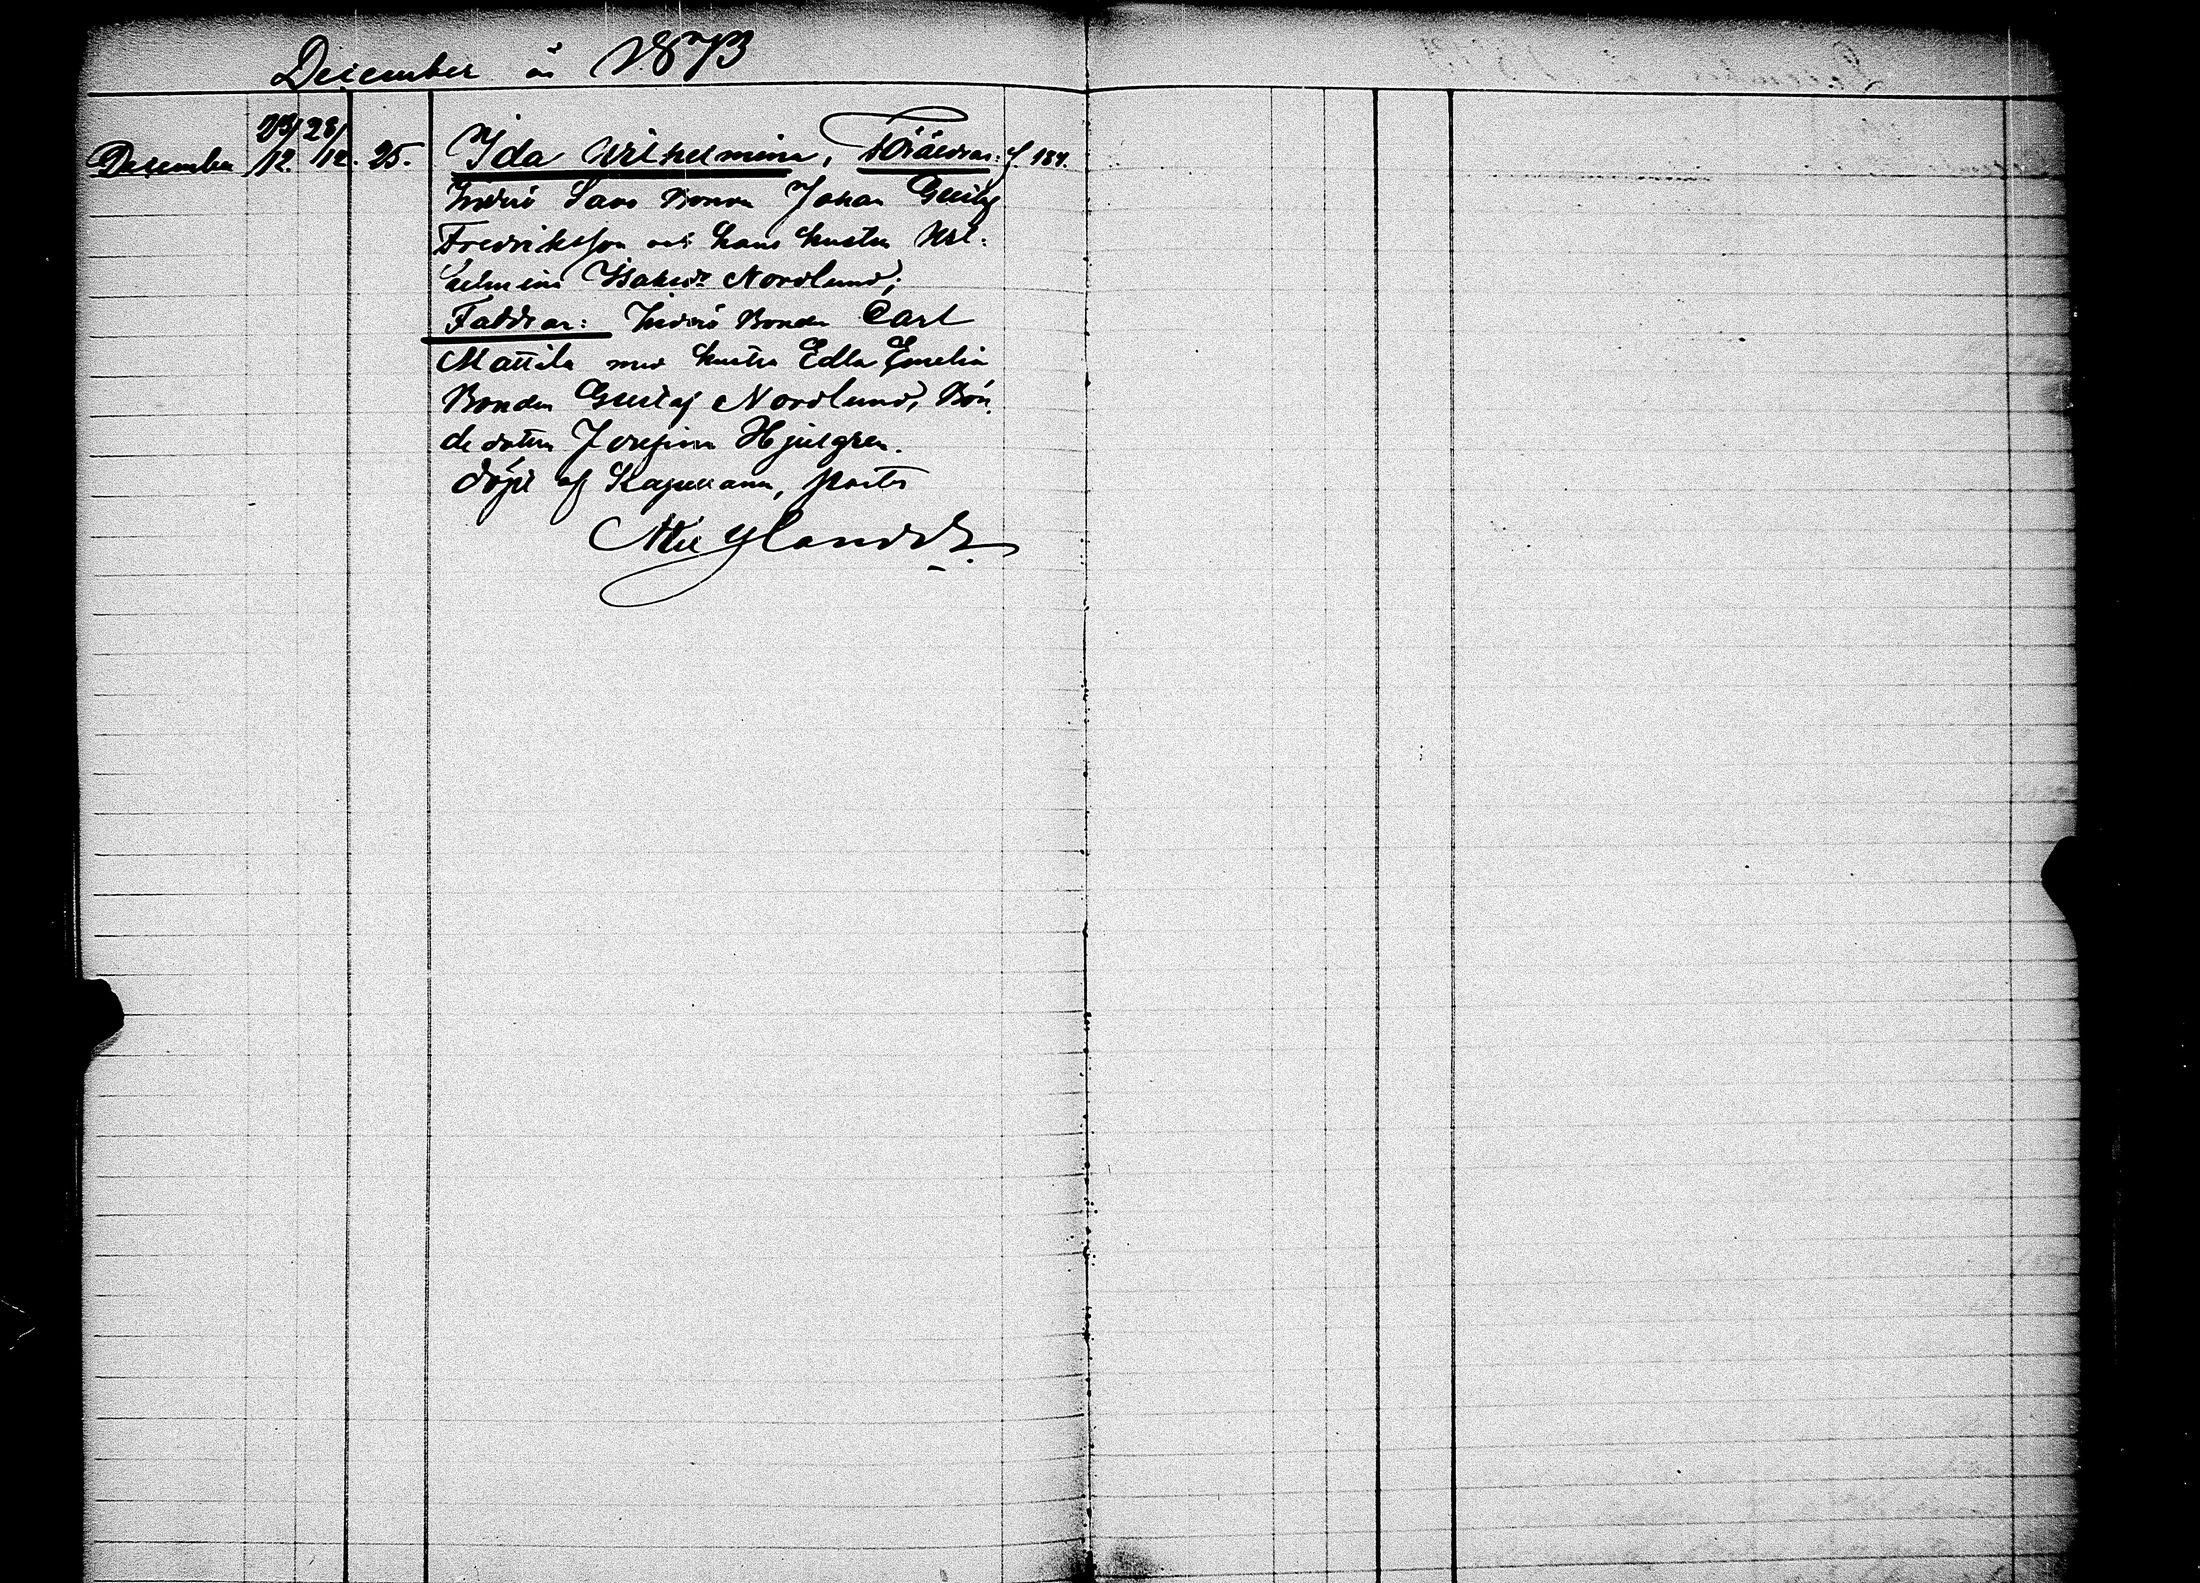 December år 1873
December 23/12. 28/12. 25. Ida Wilhelmina, Föräldrar: f. 184.
Inderö Bonden Johan Gustaf
Fredriksson och hans hustru Wil-
helmina Isaksdr Nordlund;
Faddrar: Inderö Bonden Carl
Mattila med hustru Edla Emelia
Bonden Gustaf Nordlund, Bon
dedottern Josefina Hjulgren.
döpt af Kapellanen, pastor
Nylander